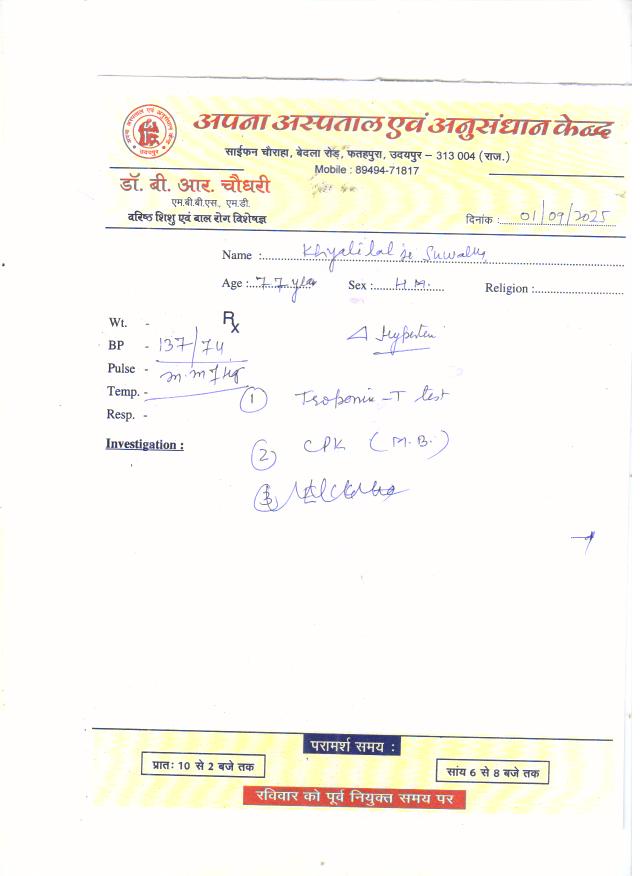 अपना अस्पताल एवं अनुसंधान केन्द्र
साईफन चौराहा, बेदला रोड़, फतहपुरा, उदयपुर – 313 004 (राज.)
Mobile : 89494-71817
डॉ. बी. आर. चौधरी
एम.बी.बी.एस., एम.डी.
वरिष्ठ शिशु एवं बाल रोग विशेषज्ञ
दिनांक : 01/09/2025
Name : Khyalilal
Age : 77 year Sex : Religion :
Rx
Wt. -
BP - 137/74
Pulse - m.m
Temp. -
Resp. -
Investigation :
① Troponin-T test
② CPK (M.B.)
③
परामर्श समय :
प्रातः 10 से 2 बजे तक
सांय 6 से 8 बजे तक
रविवार को पूर्व नियुक्त समय पर